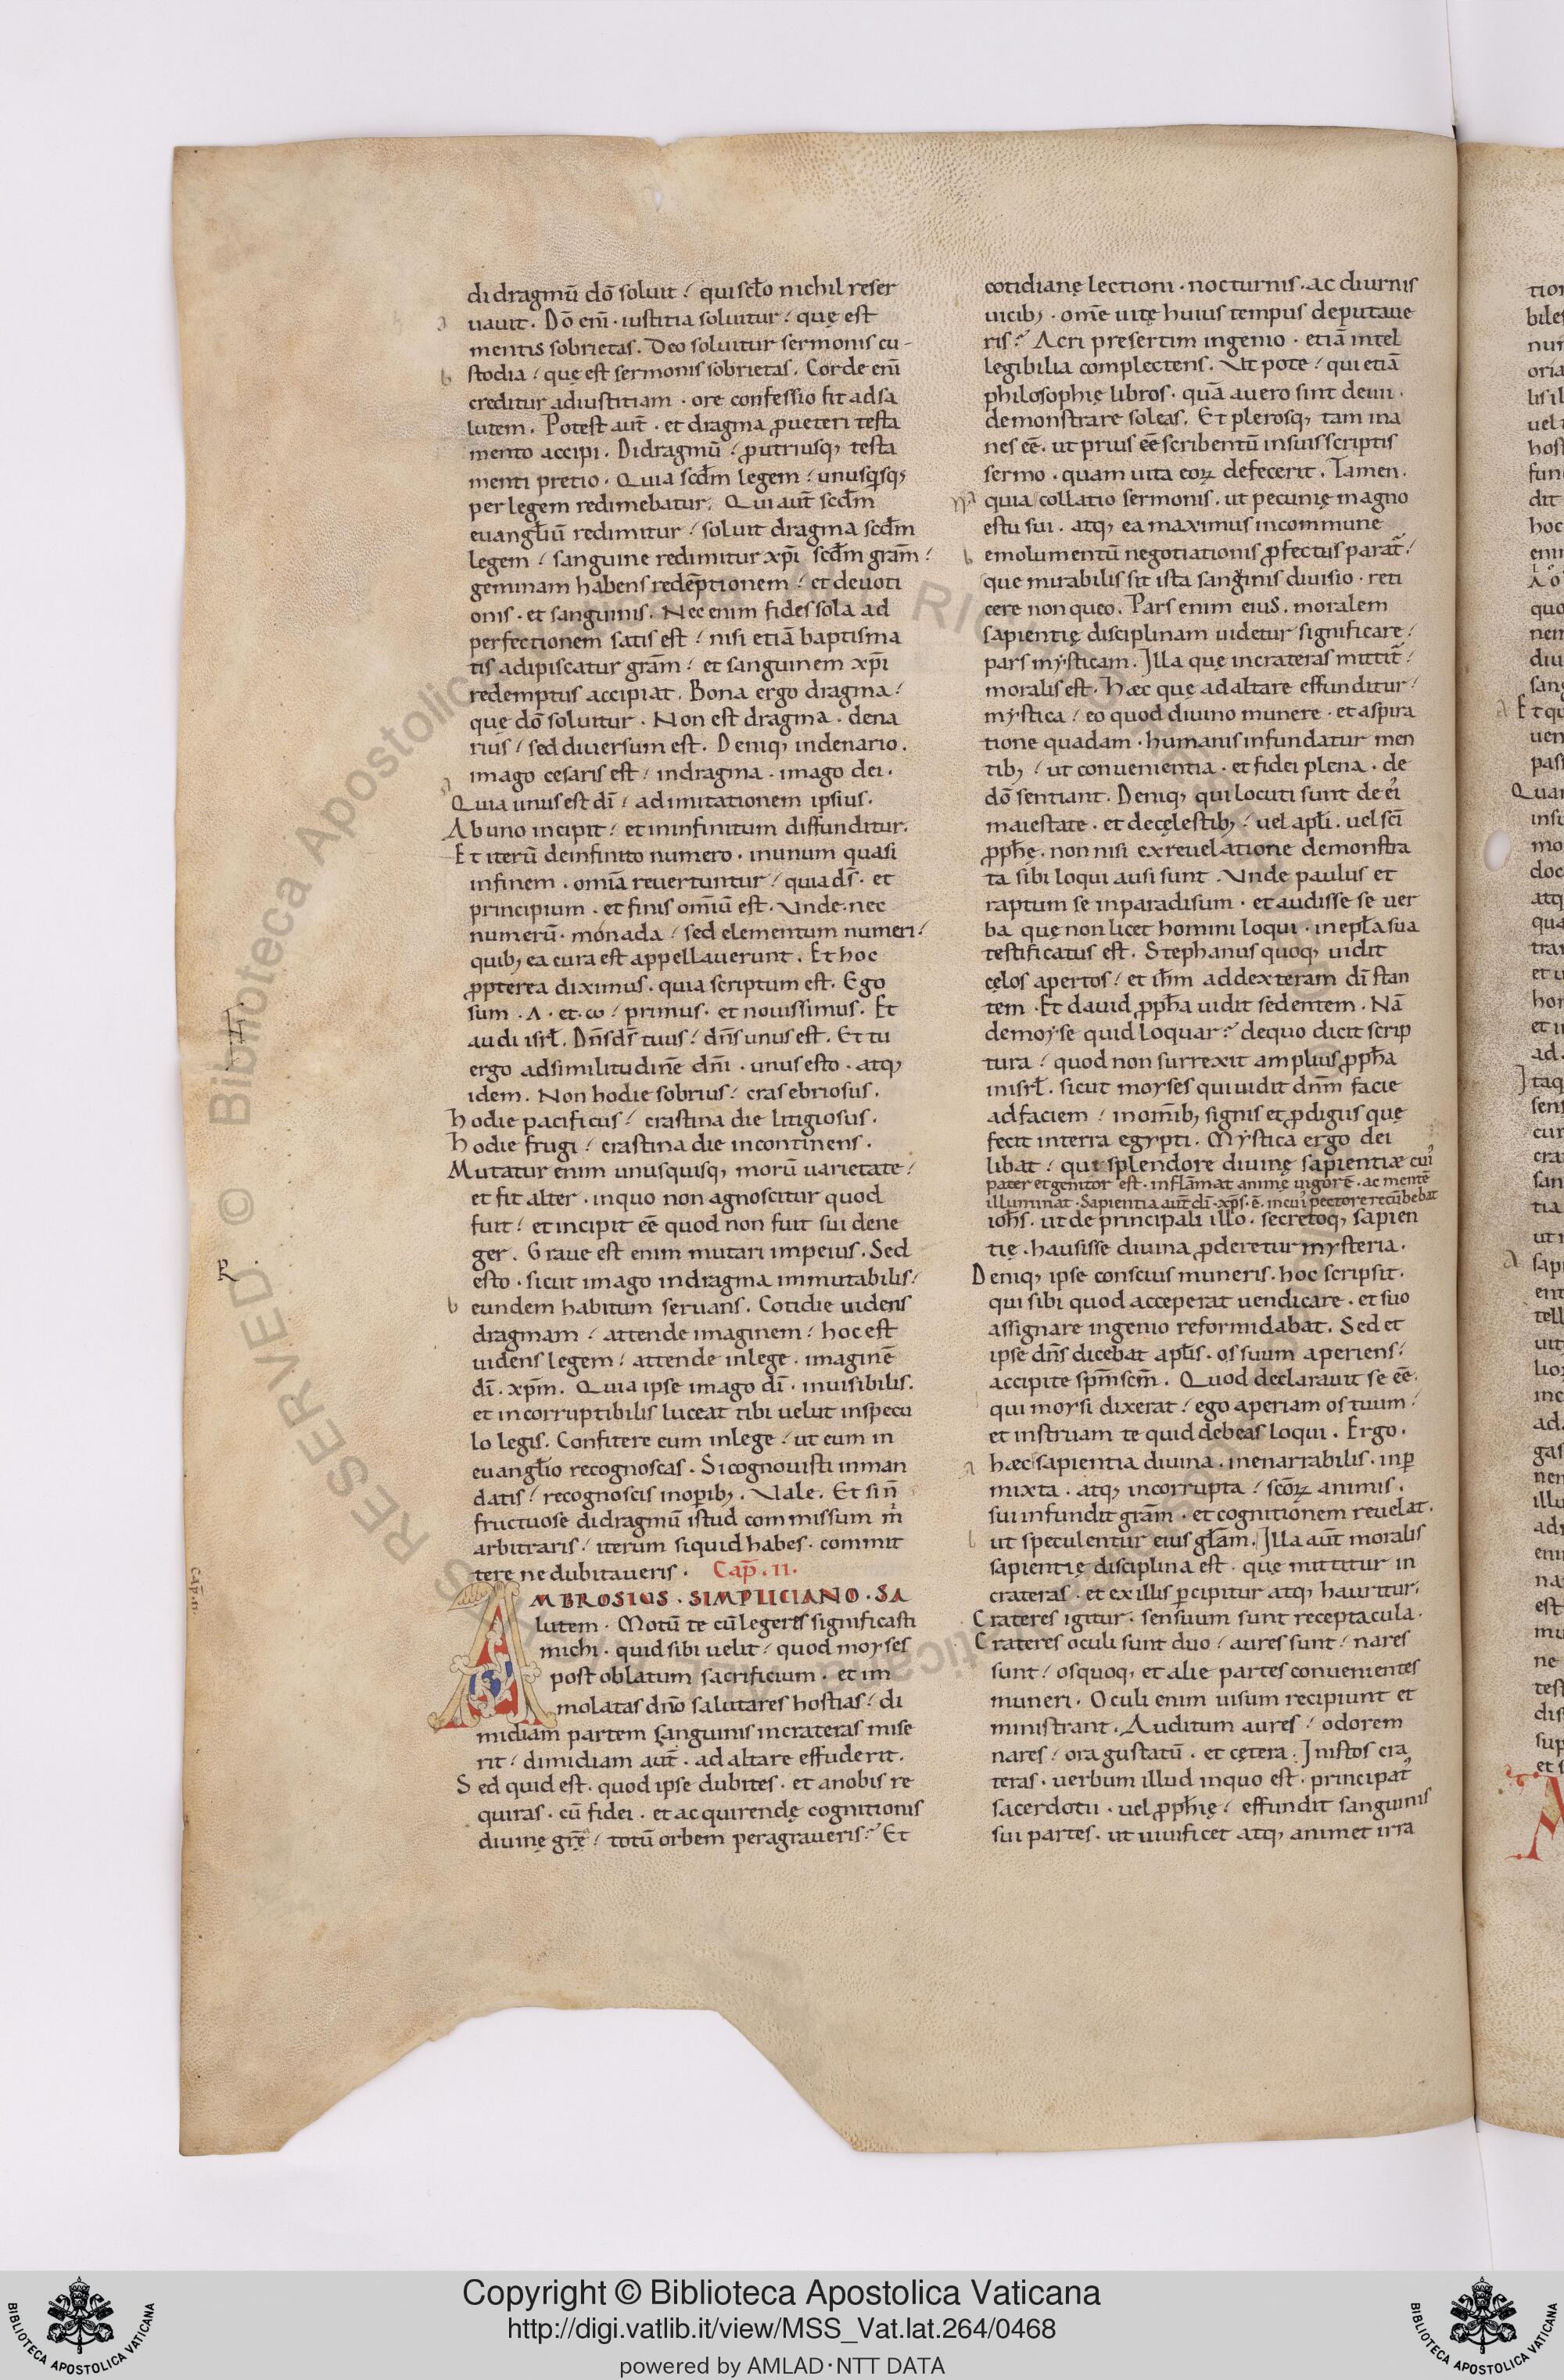 di dragmū dō soluit / qui scło nichil reser
uauit. Dō enī · iustitia soluitur / quę est
mentis sobrietas. Deo soluitur sermonis cu-
stodia / quę est sermonis sobrietas. Corde enī
creditur adiustitiam · ore confessio fit adsa
lutem. Potest aut̄ · et dragma ꝓueteri testa
mento accipi. Didragmū / ꝓutriusq; testa
menti pretio. Quia scdm̄ legem / unusqsq;
per legem redimebatur. Qui aut̄ scdm̄
euangłiū redimitur / soluit dragma scdm̄
legem / sanguine redimitur xp̄i scdm̄ grām /
geminam habens redēptionem / et deuoti
onis · et sanguinis. Nec enim fides sola ad
perfectionem satis est / nisi etiā baptisma
tis adipiscatur grām / et sanguinem xp̄i
redemptus accipiat. Bona ergo dragma /
quę dō soluitur. Non est dragma · dena
rius / sed diuersum est. Deniq; indenario.
imago cesaris est / indragma · imago dei.
Quia unus est dī / adimitationem ipsius.
Ab uno incipit / et ininfinitum diffunditur.
Et iterū deinfinito numero · inunum quasi
infinem · omīa reuertuntur / quia ds̄ · et
principium · et finis omīū est. Vnde nec
numerū · mónada / sed elementum numeri /
quib; ea cura est appellauerunt. Et hoc
ꝓpterea diximus · quia scriptum est. Ego
sum · Λ · et · ω / primus · et nouissimus. Et
audi isrł. Dn̄s ds̄ tuus / dn̄s unus est. Et tu
ergo adsimilitudinē dn̄i · unus esto · atq;
idem. Non hodie sobrius / cras ebriosus.
Hodie pacificus / crastina die litigiosus.
Hodie frugi / crastina die incontinens.
Mutatur enim unusquisq; morū uarietate /
et fit alter · inquo non agnoscitur quod
fuit / et incipit eē quod non fuit sui dene
ger. Graue est enim mutari impeius. Sed
esto · sicut imago indragma immutabilis /
eundem habitum seruans. Cotidie uidens
dragmam / attende imaginem / hoc est
uidens legem / attende inlege · imaginē
dī · xp̄m. Quia ipse imago dī · inuisibilis.
et incorruptibilis luceat tibi uelut inspecu
lo legis. Confitere eum inlege / ut eum in
euangłio recognoscas. Si cognouisti inman
datis / recognoscis inoꝑib;. Vale. Et si n̄
fructuose didragmū istud commissum m̄
arbitraris / iterum siquid habes · commit
tere ne dubitaueris. Cap̄. II.
AMBROSIUS · SIMPLICIANO · SA
lutem · Motū te cū legeres significasti
michi · quid sibi uelit / quod moyses
post oblatum sacrificium · et im
molatas dn̄o salutares hostias / di
midiam partem sanguinis incrateras mise
rit / dimidiam aut̄ · ad altare effuderit.
Sed quid est · quod ipse dubites · et anobis re
quiras · cū fidei · et acquirendę cognitionis
diuinę gr̄ę / totū orbem peragraueris? Et
cotidianę lectioni · nocturnis · ac diurnis
uicib; · omē uitę huius tempus deputaue
ris? Acri presertim ingenio · etiā intel
legibilia complectens. Vt pote / qui etiā
philosophię libros · quā auero sint deuii ·
demonstrare soleas. Et plerosq; tam ina
nes eē · ut prius eē scribentū insuis scriptis
sermo · quam uita eoꝝ defecerit. Tamen.
quia collatio sermonis · ut pecunię magno
estu sui · atq; ea maximus incommune
emolumentū negotiationis ꝓfectus parat̄ /
que mirabilis sit ista sanginis diuisio · reti
cere non queo. Pars enim eius · moralem
sapientię disciplinam uidetur significare /
pars mysticam. Illa quę incrateras mittit̄ /
moralis est. Hæc quę adaltare effunditur /
mystica / eo quod diuino munere · et aspira
tione quadam · humanis infundatur men
tib; / ut conuenientia · et fidei plena · de
dō sentiant. Deniq; qui locuti sunt de ei
maiestate · et decęlestib; / uel apłi · uel scī
ꝓphę · non nisi exreuelatione demonstra
ta sibi loqui ausi sunt. Vnde paulus et
raptum se inparadisum · et audisse se uer
ba quę non licet homini loqui · inepła sua
testificatus est. Stephanus quoq; uidit
cęlos apertos / et ihm̄ addexteram dī stan
tem · Et dauid ꝓpha uidit sedentem. Nā
demoyse quid loquar? dequo dicit scrip
tura / quod non surrexit amplius ꝓpha
inisrł · sicut moyses qui uidit dn̄m facie
adfaciem / inomīb; signis et ꝓdigiis quę
fecit interra egypti. Mystica ergo dei
libat / qui splendore diuinę sapientiæ cui
pater et genitor est · inflāmat animę uigorē · ac mentē
illuminat · Sapientia aut̄ dī · xp̄s · ē · incui pectore recūbebat
ioħs · ut de principali illo · secretoq; sapien
tię · hausisse diuina ꝓderetur mysteria.
Deniq; ipse conscius muneris · hoc scripsit.
qui sibi quod acceperat uendicare · et suo
assignare ingenio reformidabat. Sed et
ipse dn̄s dicebat apłis · os suum aperiens /
accipite sp̄m scm̄. Quod declarauit se eē.
qui moysi dixerat / ego aperiam os tuum /
et instruam te quid debeas loqui. Ergo.
hæc sapientia diuina · inenarrabilis · inꝑ
mixta · atq; incorrupta / scōꝝ animis.
sui infundit grām · et cognitionem reuelat.
ut speculentur eius głam. Illa aut̄ moralis
sapientię disciplina est · quę mittitur in
crateras · et exillis ꝑcipitur atq; hauritur.
Crateres igitur · sensuum sunt receptacula.
Crateres oculi sunt duo / aures sunt / nares
sunt / osquoq; et alie partes conuenientes
muneri. Oculi enim uisum recipiunt et
ministrant. Auditum aures / odorem
nares / ora gustatū · et cętera. Inistos cra
teras · uerbum illud inquo est · principat̄
sacerdotii · uel ꝓphię / effundit sanguinis
sui partes · ut uiuificet atq; animet irra
Cap̄. II
Copyright © Biblioteca Apostolica Vaticana
http://digi.vatlib.it/view/MSS_Vat.lat.264/0468
powered by AMLAD·NTT DATA
BIBLIOTECA APOSTOLICA VATICANA
BIBLIOTECA APOSTOLICA VATICANA